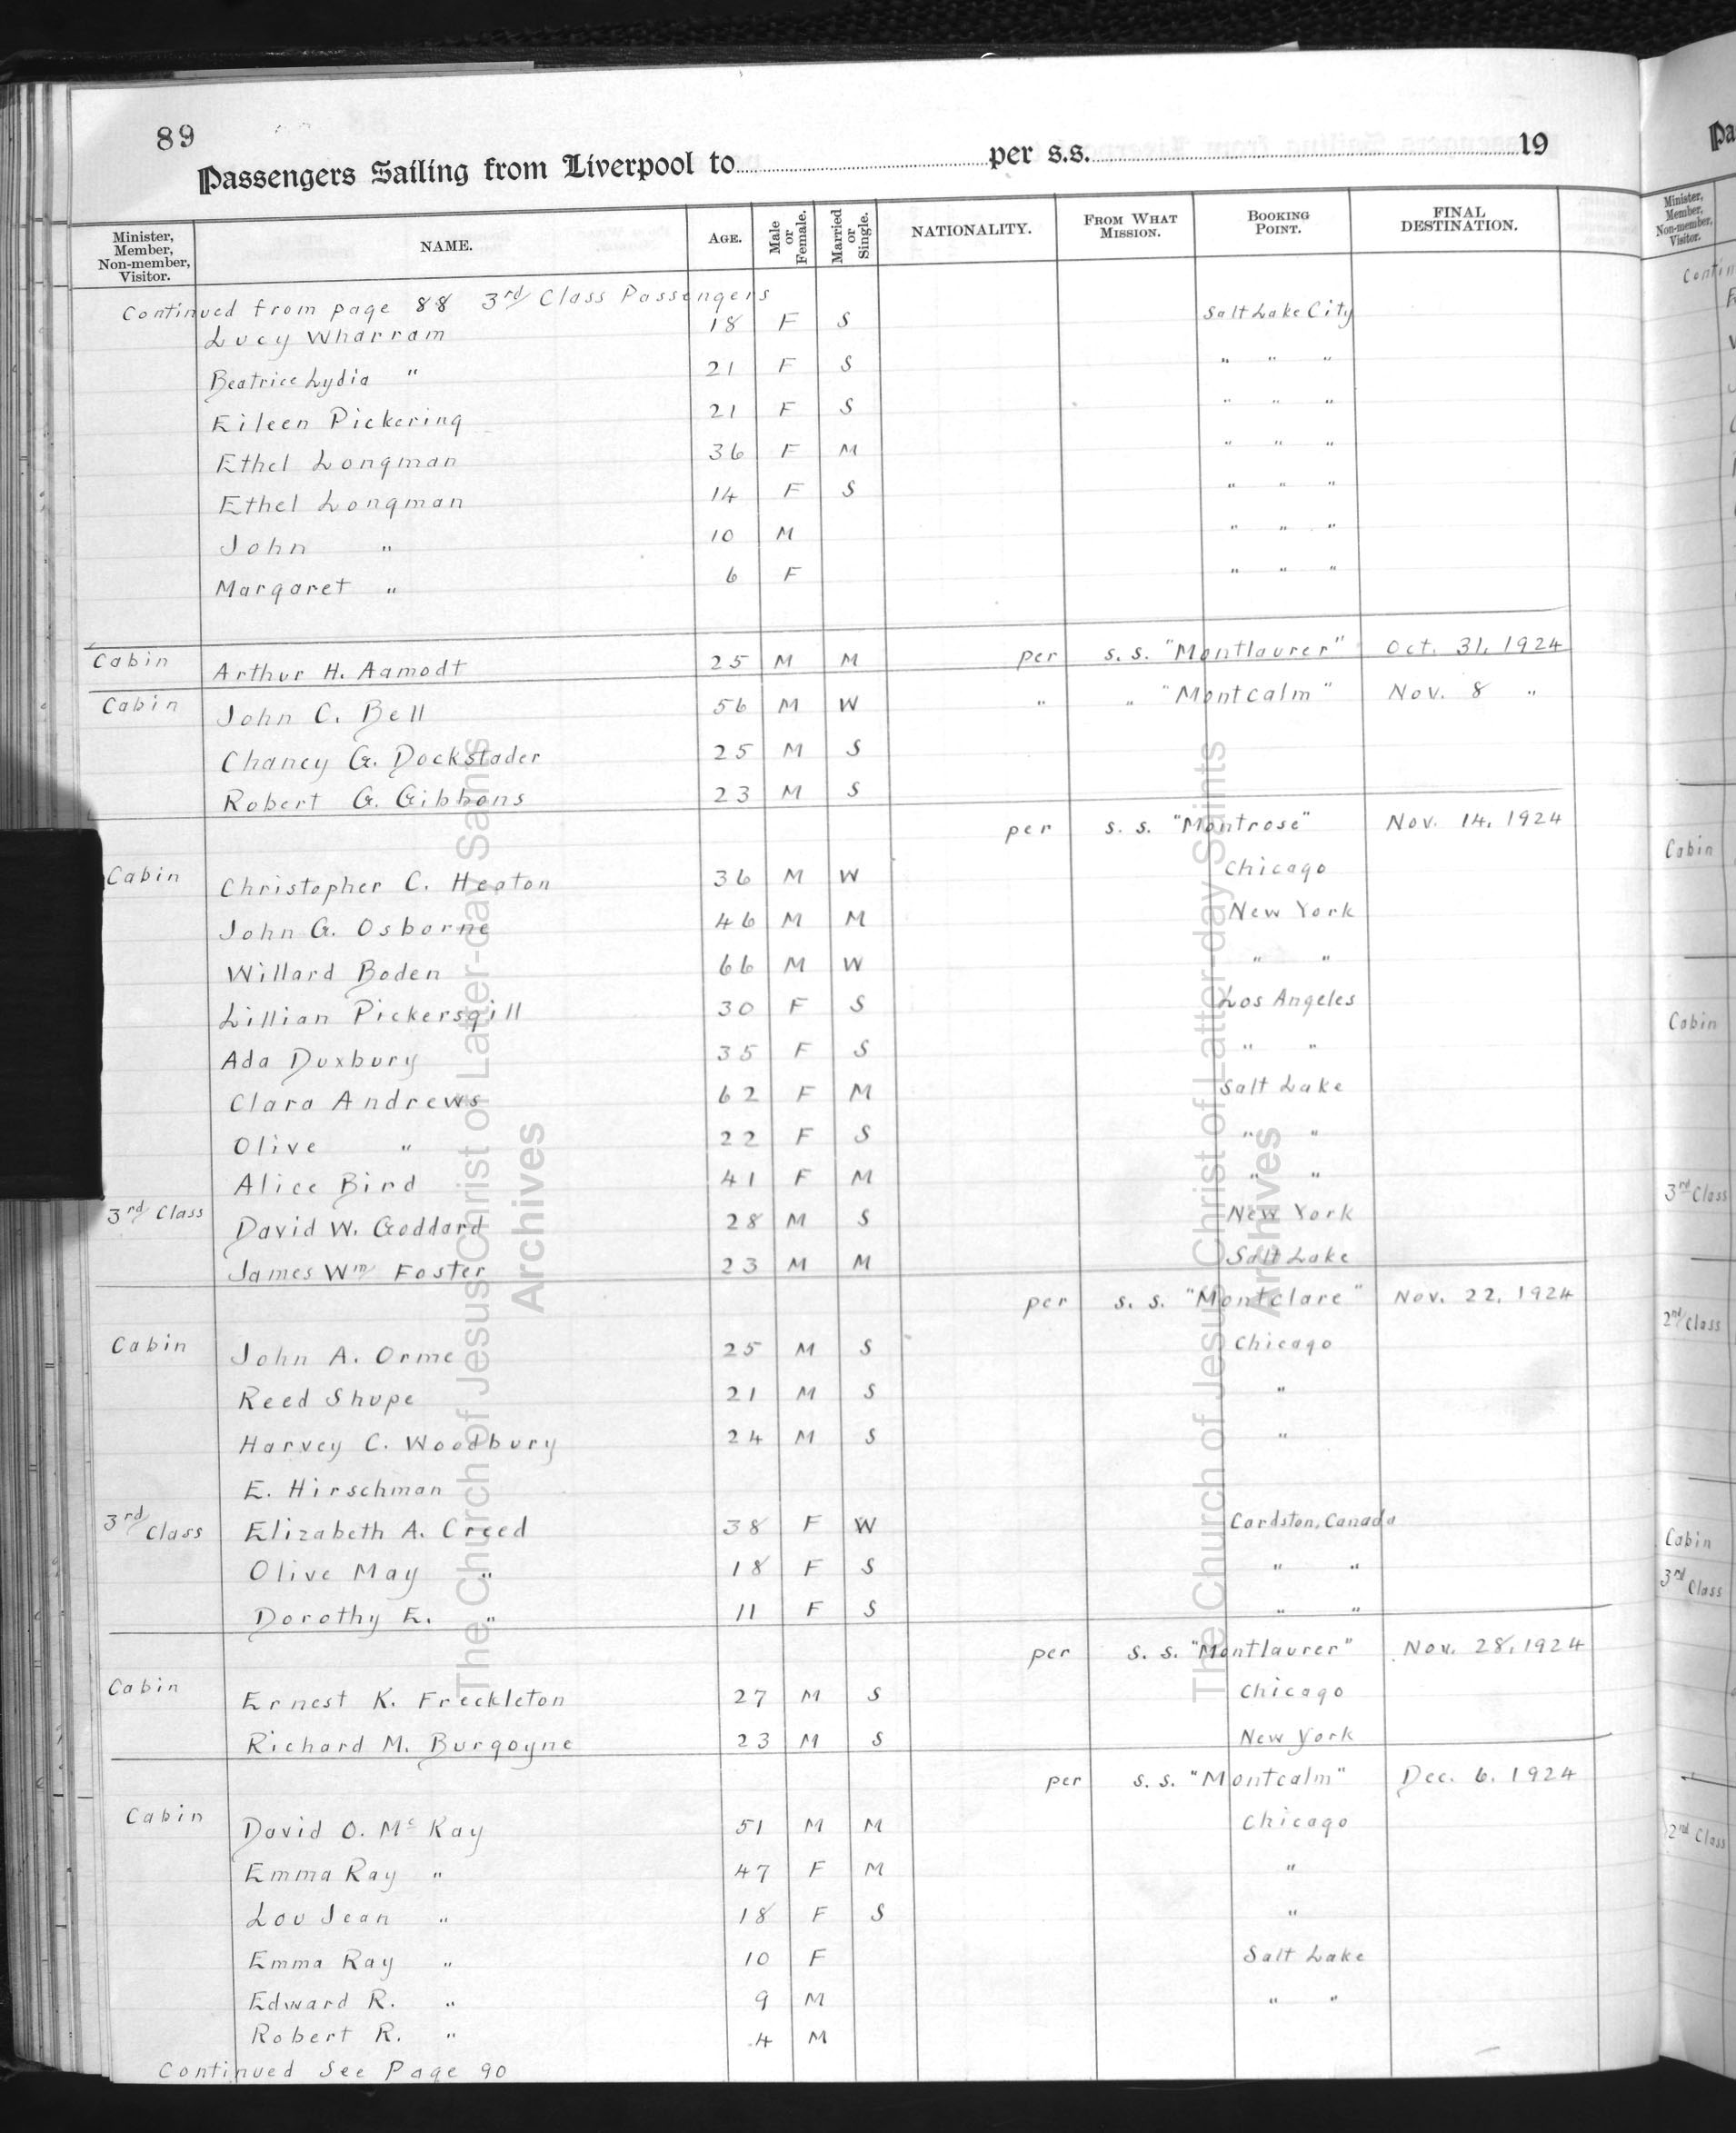 89
Passengers Sailing from Liverpool to per s.s. 19
Minister, Member, Non-member, Visitor. NAME. AGE. Male or Female. Married or Single. NATIONALITY. FROM WHAT MISSION. BOOKING POINT. FINAL DESTINATION.
Continued from page 88 3rd Class Passengers
Lucy Wharram 18 F S Salt Lake City
Beatrice Lydia " 21 F S " " "
Eileen Pickering 21 F S " " "
Ethel Longman 36 F M " " "
Ethel Longman 14 F S " " "
John " 10 M " " "
Margaret " 6 F " " "
Cabin Arthur H. Aamodt 25 M M per s.s. "Montlaurer" Oct. 31, 1924
Cabin John C. Bell 56 M W " " "Montcalm" Nov. 8 "
Chancy G. Dockstader 25 M S
Robert G. Gibbons 23 M S
per s.s. "Montrose" Nov. 14, 1924
Cabin Christopher C. Heaton 36 M W Chicago
John G. Osborne 46 M M New York
Willard Boden 66 M W " "
Lillian Pickersgill 30 F S Los Angeles
Ada Duxbury 35 F S " "
Clara Andrews 62 F M Salt Lake
Olive " 22 F S " "
Alice Bird 41 F M " "
3rd Class David W. Goddard 28 M S New York
James Wm Foster 23 M M Salt Lake
per s.s. "Montclare" Nov. 22, 1924
Cabin John A. Orme 25 M S Chicago
Reed Shupe 21 M S "
Harvey C. Woodbury 24 M S "
E. Hirschman
3rd Class Elizabeth A. Creed 38 F W Cardston, Canada
Olive May " 18 F S " "
Dorothy E. " 11 F S " "
per s.s. "Montlaurer" Nov. 28, 1924
Cabin Ernest K. Freckleton 27 M S Chicago
Richard M. Burgoyne 23 M S New York
per s.s. "Montcalm" Dec. 6, 1924
Cabin David O. McKay 51 M M Chicago
Emma Ray " 47 F M "
Lou Jean " 18 F S "
Emma Ray " 10 F Salt Lake
Edward R. " 9 M " "
Robert R. " 4 M
Continued See Page 90
The Church of Jesus Christ of Latter-day Saints
Archives
The Church of Jesus Christ of Latter-day Saints
Archives
Pa
Minister, Member, Non-member, Visitor.
Contin
Cabin
Cabin
3rd Class
2nd Class
Cabin
3rd Class
2nd Class